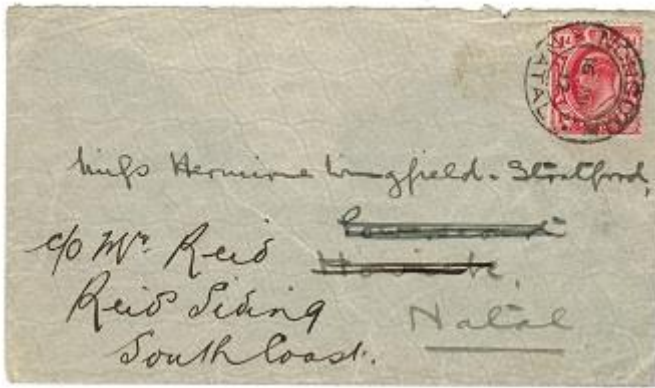 Miss Hermione Wingfield-Stratford,
Howick,
Natal
c/o Mr. Reid
Reid's Siding
South Coast.
NATAL